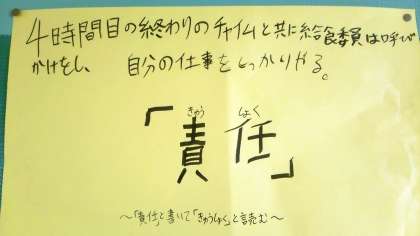 4時間目の終わりのチャイムと共に給食委員は呼び
かけをし、自分の仕事をしっかりやる。
きゅう しょく
「責任」
～「責任」と書いて「きゅうしょく」と読む～